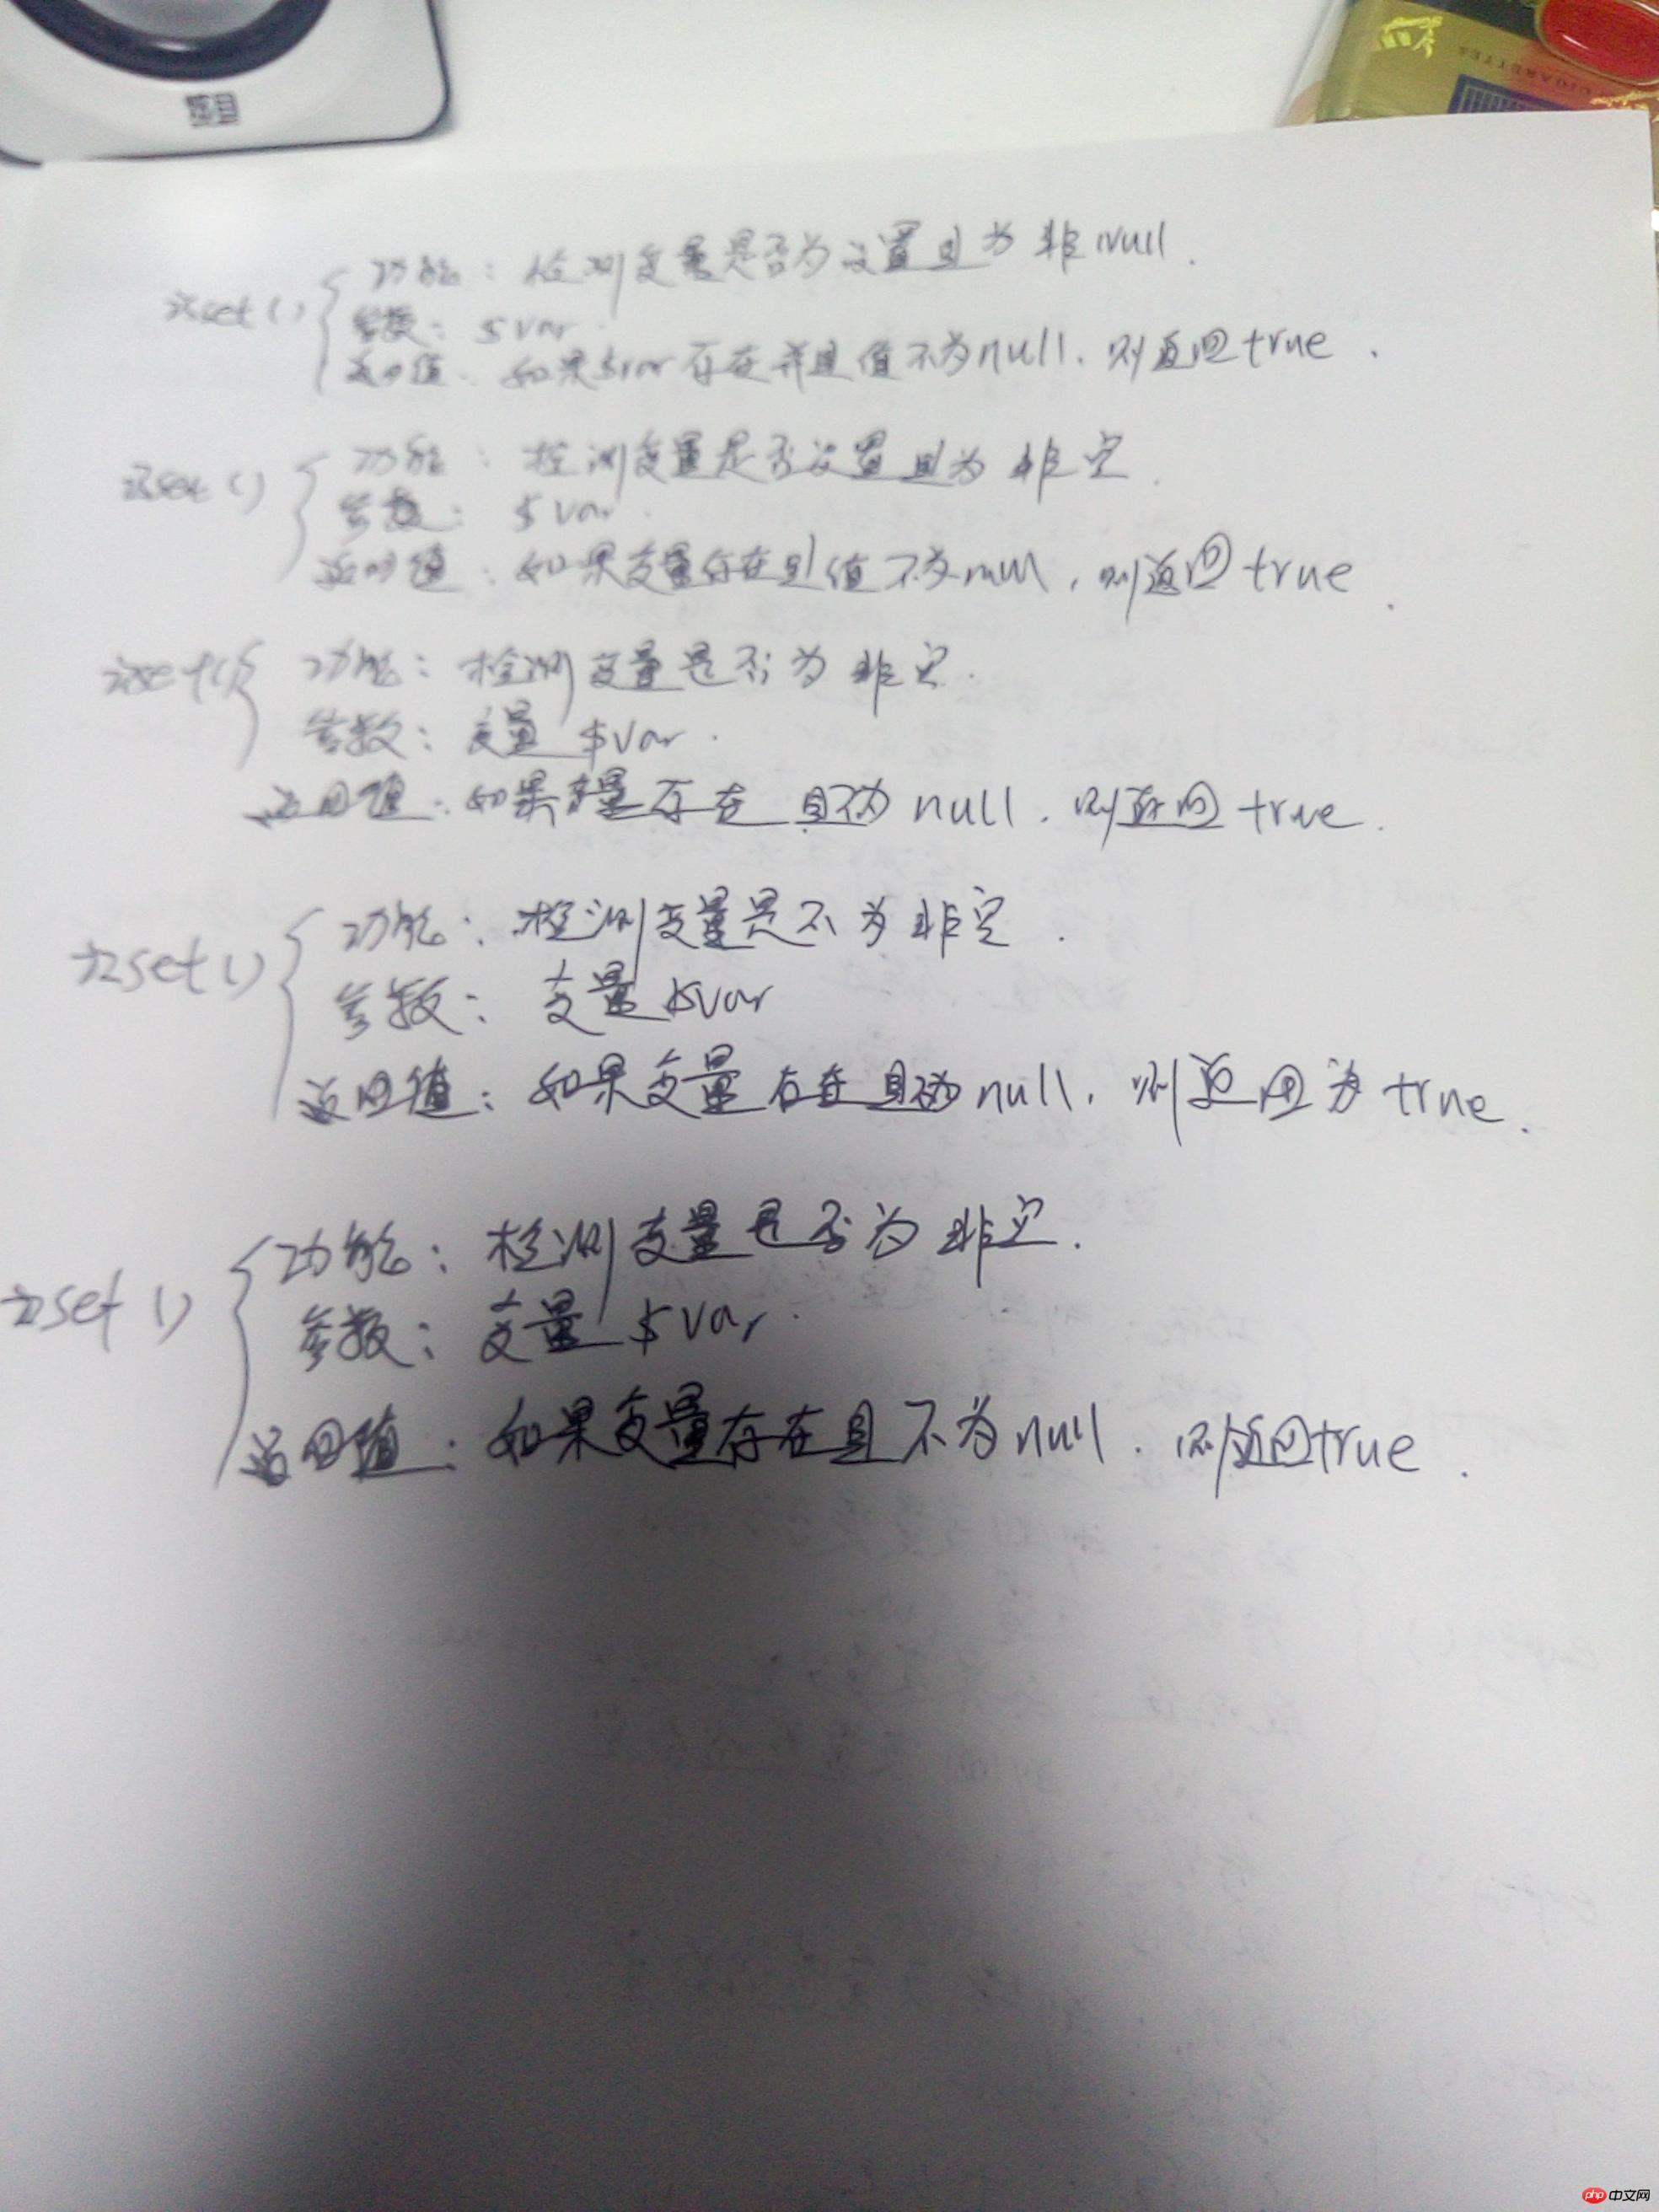 CIGARETTES
isset() 功能：检测变量是否为设置且为非Null.
参数：$var.
返回值：如果$var存在并且值不为null.则返回true.
isset() 功能：检测变量是否设置且为非空.
参数：$var.
返回值：如果变量存在且值不为null,则返回true.
isset() 功能：检测变量是否为非空.
参数：变量$var.
返回值：如果变量存在且不为null.则返回true.
isset() 功能：检测变量是不为非空.
参数：变量$var
返回值：如果变量存在且不为null.则返回为true.
isset() 功能：检测变量是否为非空.
参数：变量$var.
返回值：如果变量存在且不为null.则返回true.
php 中文网